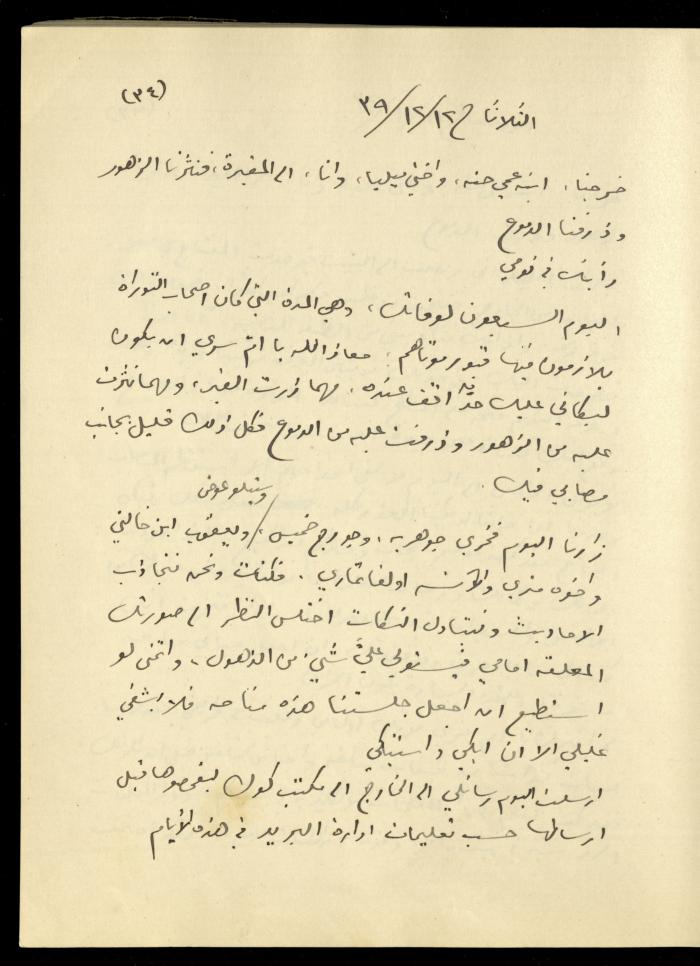 (٣٤)
الثلاثا ١٢/١٢/٣٩
خرجنا، ابنة عمي حنه، واختي ميليا، وانا، الى المقبرة، فنثرنا الزهور
وذرفنا الدموع
رأيتك في نومي
اليوم السبعون لوفاتك، وهي المدة التي كان اصحاب التوراة
يلازمون فيها قبور موتاهم. معاذ الله يا ام سري ان يكون
لبكائي عليك حدّ اقف عنده. مهما زرت القبر، ومهما نثرت
عليه من الزهور وذرفت عليه من الدموع فكل ذلك قليل بجانب
مصابي فيك.
زارنا اليوم فخري جوهريه، وجورج خميس، / ويعقوب ابن خالتي
وستلو عوض
واخوه منري والآنسه اولغا تماري. فكنت ونحن نتجاذب
الاحاديث ونتبادل النكات اختلس النظر الى صورتك
المعلقه امامي فيستولي عليَّ شيئ من الذهول، واتمنى لو
استطيع ان اجعل جلستنا هذه مناحه فلا يشفي
غليلي الا ان ابكي واستبكي
ارسلت اليوم رسائلي الى الخارج الى مكتب كوك ليفحصوها قبل
ارسالها حسب تعليمات ادارة البريد في هذه الأيام